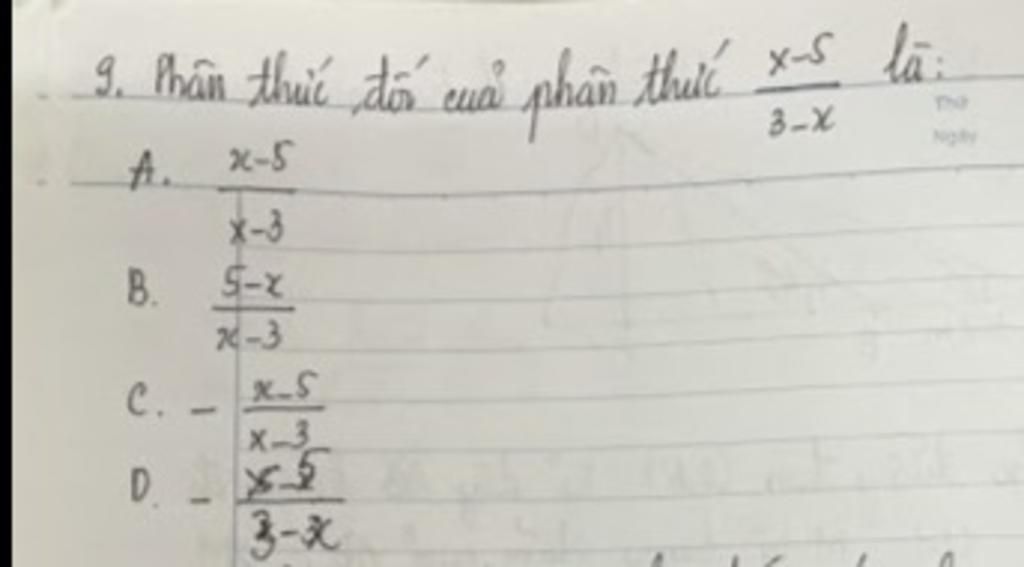 9. Phân thức đối của phân thức x-5 / 3-x là:
Thứ
Ngày
A. x-5 / x-3
B. 5-x / x-3
C. - x-5 / x-3
D. - x-5 / 3-x